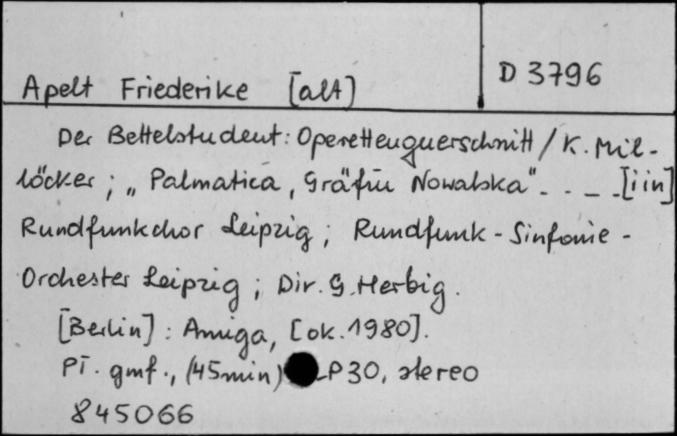 Apelt Friederike [alt]
D 3796
Der Bettelstudent: Operettenquerschnitt / K. Mil-
löcker; „Palmatica, Gräfin Nowalska" - . - - [i in]
Rundfunkchor Leipzig; Rundfunk-Sinfonie-
Orchester Leipzig; Dir. G. Herbig.
[Berlin]: Amiga, [ok. 1980].
Pł. gmf., (45min) LP30, stereo
845066